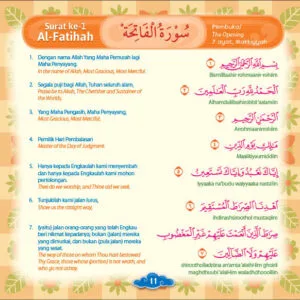 Surat ke-1
Al-Fatihah
سُوْرَةُ الْفَاتِحَةِ
Pembuka/
The Opening
7 ayat, Makkiyyah
1. Dengan nama Allah Yang Maha Pemurah lagi
Maha Penyayang.
In the name of Allah, Most Gracious, Most Merciful.
بِسْمِ اللّٰهِ الرَّحْمٰنِ الرَّحِيْمِ
Bismillaahir-rahmaanir-rahiim.
2. Segala puji bagi Allah, Tuhan seluruh alam,
Praise be to Allah, The Cherisher and Sustainer of
the Worlds;
اَلْحَمْدُ لِلّٰهِ رَبِّ الْعٰلَمِيْنَ
3. Yang Maha Pengasih, Maha Penyayang,
Most Gracious, Most Merciful;
الرَّحْمٰنِ الرَّحِيْمِ
4. Pemilik Hari Pembalasan
Master of the Day of Judgment.
مٰلِكِ يَوْمِ الدِّيْنِ
5. Hanya kepada Engkaulah kami menyembah
dan hanya kepada Engkaulah kami mohon
pertolongan.
Thee do we worship, and Thine aid we seek.
اِيَّاكَ نَعْبُدُ وَاِيَّاكَ نَسْتَعِيْنُ
6. Tunjukilah kami jalan lurus,
Show us the straight way,
اِهْدِنَا الصِّرَاطَ الْمُسْتَقِيْمَ
7. (yaitu) jalan orang-orang yang telah Engkau
beri nikmat kepadanya, bukan (jalan) mereka
yang dimurkai, dan bukan (pula jalan) mereka
yang sesat.
The way of those on whom Thou hast bestowed
Thy Grace, those whose (portion) is not wrath, and
who go not astray.
صِرَاطَ الَّذِيْنَ اَنْعَمْتَ عَلَيْهِمْ غَيْرِ الْمَغْضُوْبِ
عَلَيْهِمْ وَلَا الضَّاۤلِّيْنَ
11